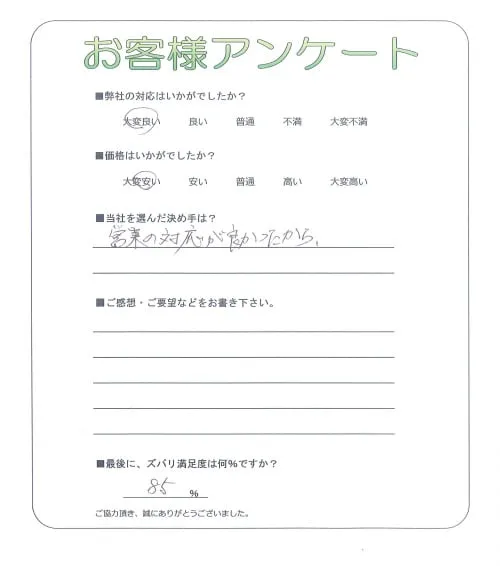 お客様アンケート
■弊社の対応はいかがでしたか?
大変良い 良い 普通 不満 大変不満
■価格はいかがでしたか?
大変安い 安い 普通 高い 大変高い
■当社を選んだ決め手は?
営業の対応が良かったから、
■ご感想・ご要望などをお書き下さい。
■最後に、ズバリ満足度は何%ですか?
85 %
ご協力頂き、誠にありがとうございました。